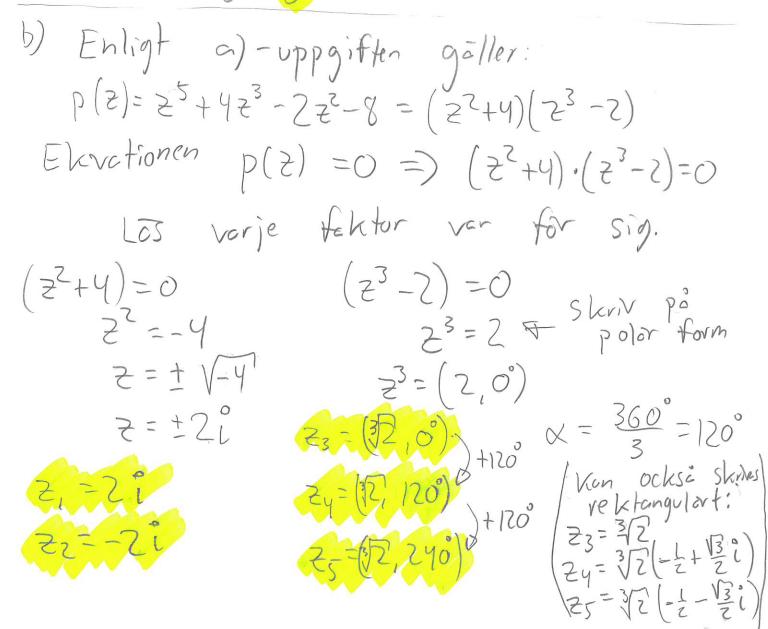 b) Enligt a)-uppgiften gäller:
p(z) = z⁵ + 4z³ - 2z² - 8 = (z²+4)(z³ -2)
Ekvationen p(z) = 0 ⇒ (z²+4)·(z³-2)=0
Lös varje faktor var för sig.
(z²+4) = 0
z² = -4
z = ± √-4
z = ±2i
z₁ = 2i
z₂ = -2i
(z³ -2) = 0
z³ = 2 ← skriv på polär form
z³ = (2, 0°)
z₃ = (∛2, 0°)
+120°
z₄ = (∛2, 120°)
+120°
z₅ = (∛2, 240°)
α = 360°/3 = 120°
(Kan också skrivas
rektangulärt:
z₃ = ∛2
z₄ = ∛2(-1/2 + √3/2 i)
z₅ = ∛2(-1/2 - √3/2 i))